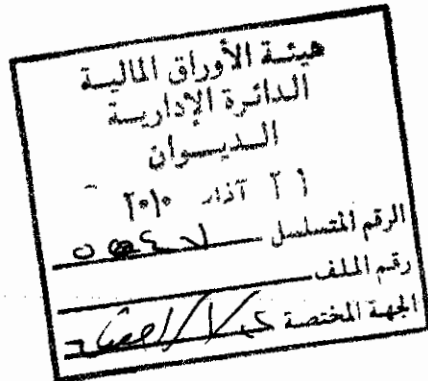 هيئة الأوراق المالية
الدائرة الإدارية
الديوان
٢١ آذار ٢٠١٠
الرقم المتسلسل
رقم الملف
الجهة المختصة